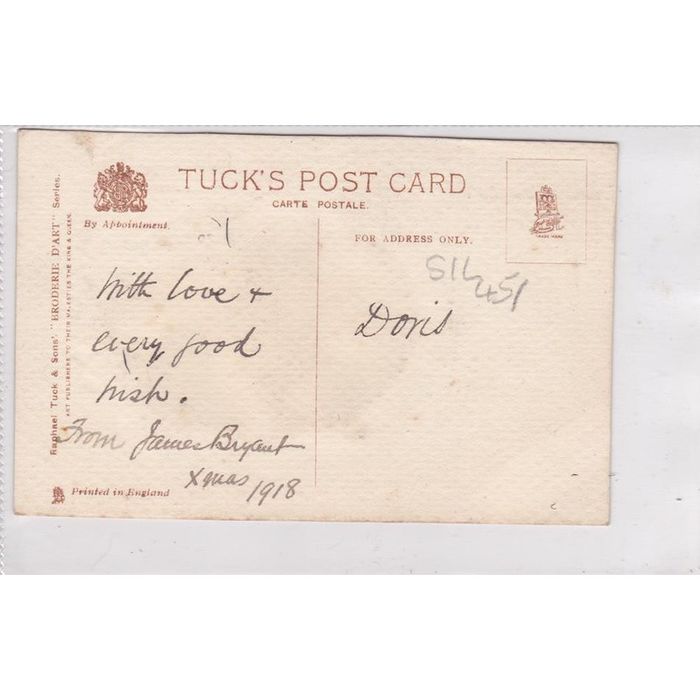 TUCK'S POST CARD
CARTE POSTALE.
By Appointment.
FOR ADDRESS ONLY.
Raphael Tuck & Sons' "BRODERIE D'ART" Series.
ART PUBLISHERS TO THEIR MAJESTIES THE KING & QUEEN.
TRADE MARK
With love +
every good
wish.
From James Bryant
Xmas 1918
Doris
Printed in England